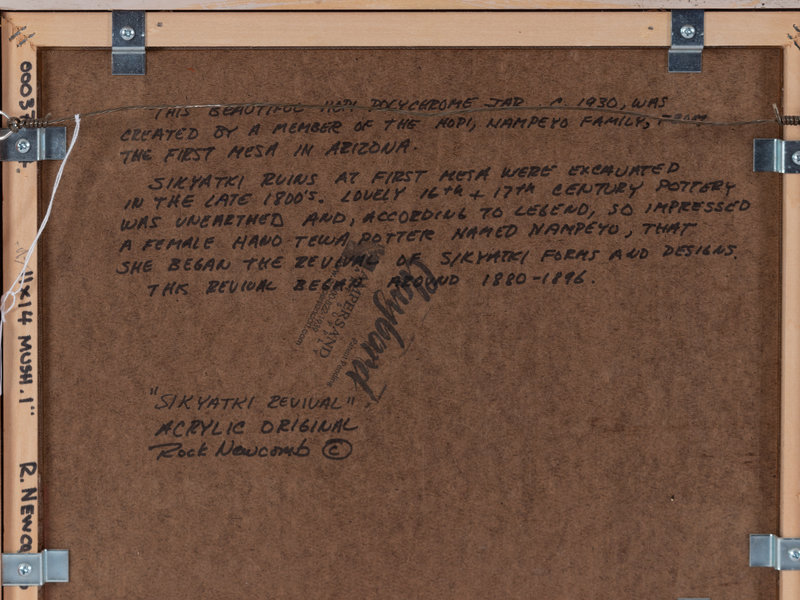 THIS BEAUTIFUL HOPI POLYCHROME JAR C 1930, WAS
CREATED BY A MEMBER OF THE HOPI, NAMPEYO FAMILY, FROM
THE FIRST MESA IN ARIZONA.
SIKYATKI RUINS AT FIRST MESA WERE EXCAVATED
IN THE LATE 1800'S. LOVELY 16TH + 17TH CENTURY POTTERY
WAS UNEARTHED AND, ACCORDING TO LEGEND, SO IMPRESSED
A FEMALE HANO TEWA POTTER NAMED NAMPEYO, THAT
SHE BEGAN THE REVIVAL OF SIKYATKI FORMS AND DESIGNS.
THIS REVIVAL BEGAN AROUND 1880-1896.
AMPERSAND
Claybord
"SIKYATKI REVIVAL"
ACRYLIC ORIGINAL
Rock Newcomb ©
11x14 MUSH. 1"
R. NEWCO